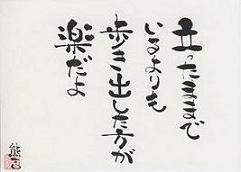 立ったままで
いるよりも
歩き出した方が
楽だよ